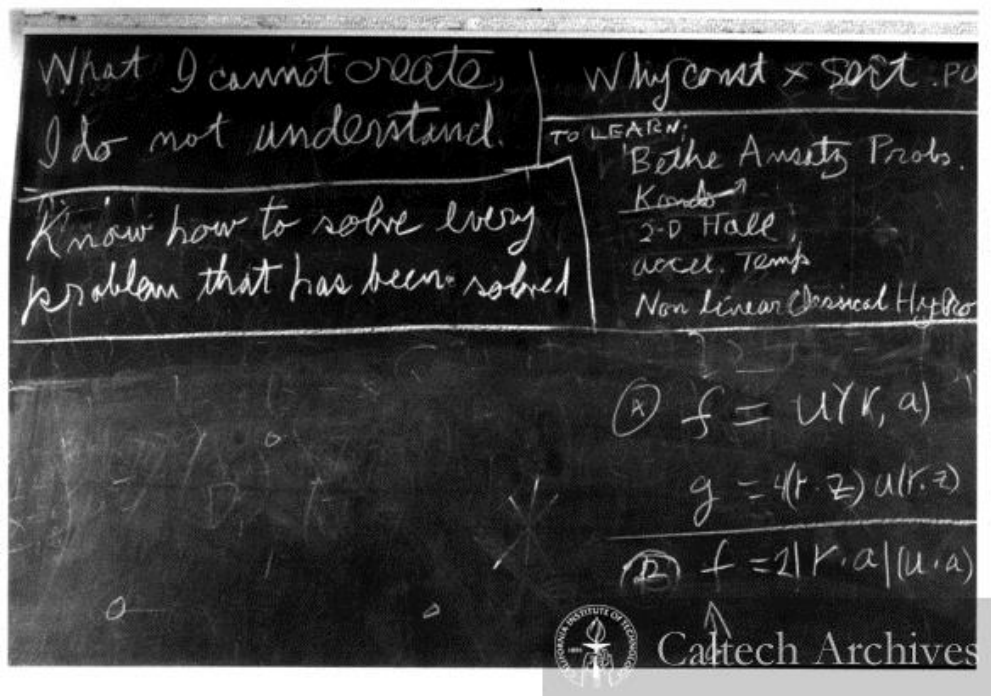 What I cannot create,
I do not understand.
Know how to solve every
problem that has been solved
Why const × sort . PO
TO LEARN:
Bethe Ansatz Probs.
Kondo
2-D Hall
accel. Temp
Non linear Classical Hydro
(A) f = u(r, a)
g = 4(r·z) u(r.z)
(B) f = 2|r·a|(u·a)
CALIFORNIA INSTITUTE OF TECHNOLOGY
1891
Caltech Archives